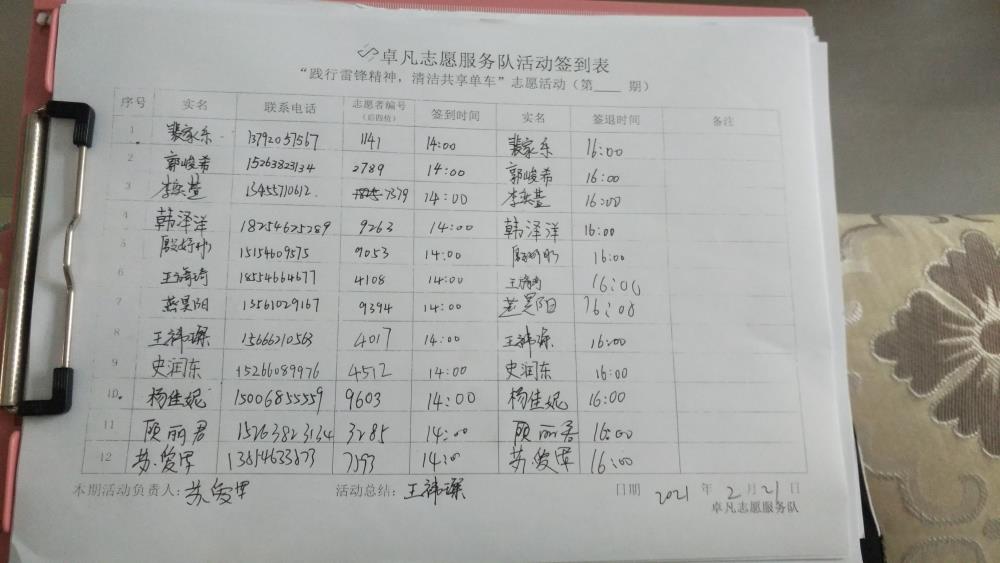 卓凡志愿服务队活动签到表
“践行雷锋精神，清洁共享单车”志愿活动（第____ 期）
序号 实名 联系电话 志愿者编号（后四位） 签到时间 实名 签退时间 备注
1 裴家乐 13792057567 1141 14:00 裴家乐 16:00
2 郭峻希 15263823134 2789 14:00 郭峻希 16:00
3 李奕萱 13455710612. 7379 14:00 李奕萱 16:00
4 韩泽洋 18254625289 9263 14:00 韩泽洋 16:00
5 15154609575 9053 14:00 16:00
6 18554664677 4108 14:00 16:00
7 燕昊阳 13561029167 9394 14:00 燕昊阳 16:08
8 王祎璨 15666210563 4017 14:00 王祎璨 16:00
9 史润东 15266089976 4512 14:00 史润东 16:00
10. 杨佳妮 15006855559 9603 14:00 杨佳妮 16:00
11 顾丽君 15263823134 3285 14:00 顾丽君 16:00
12 苏俊军 13854633873 7393 14:0 苏俊军 16:00
本期活动负责人：苏俊军 活动总结：王祎璨 日期 2021 年 2 月 21 日
卓凡志愿服务队